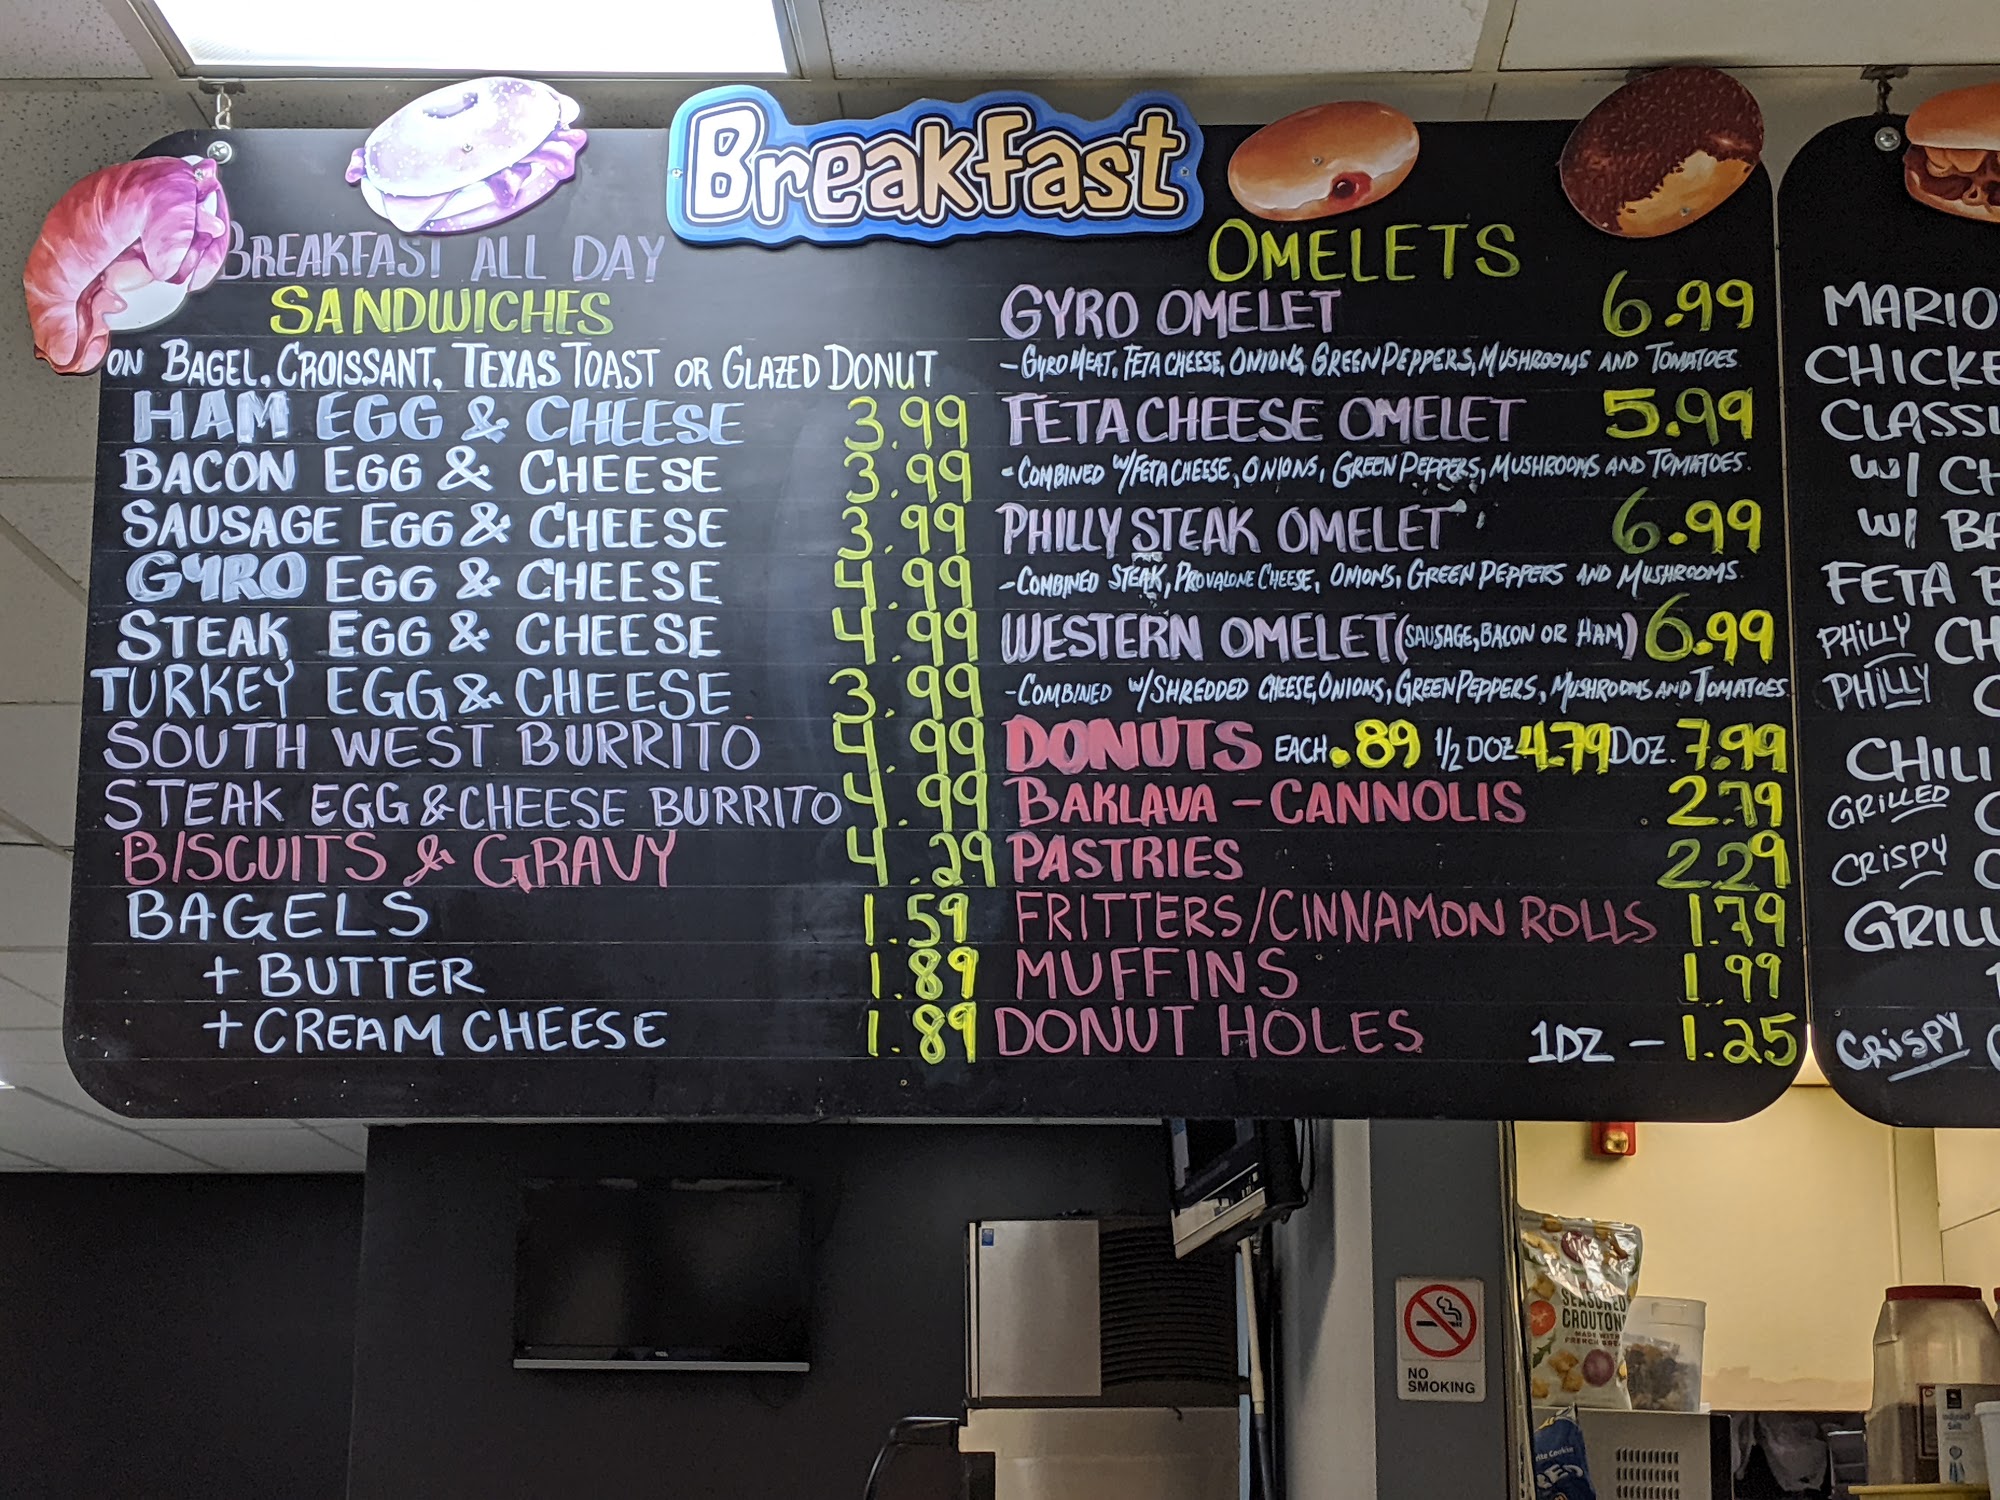 Breakfast
BREAKFAST ALL DAY
SANDWICHES
ON BAGEL, CROISSANT, TEXAS TOAST OR GLAZED DONUT
HAM EGG & CHEESE 3.99
BACON EGG & CHEESE 3.99
SAUSAGE EGG & CHEESE 3.99
GYRO EGG & CHEESE 4.99
STEAK EGG & CHEESE 4.99
TURKEY EGG & CHEESE 3.99
SOUTH WEST BURRITO 4.99
STEAK EGG & CHEESE BURRITO 4.99
BISCUITS & GRAVY 4.29
BAGELS 1.59
+ BUTTER 1.89
+ CREAM CHEESE 1.89
OMELETS
GYRO OMELET 6.99
- GYRO MEAT, FETA CHEESE, ONIONS, GREEN PEPPERS, MUSHROOMS AND TOMATOES
FETA CHEESE OMELET 5.99
- COMBINED W/FETA CHEESE, ONIONS, GREEN PEPPERS, MUSHROOMS AND TOMATOES.
PHILLY STEAK OMELET 6.99
- COMBINED STEAK, PROVALONE CHEESE, ONIONS, GREEN PEPPERS AND MUSHROOMS.
WESTERN OMELET (SAUSAGE, BACON OR HAM) 6.99
- COMBINED W/SHREDDED CHEESE, ONIONS, GREEN PEPPERS, MUSHROOMS AND TOMATOES.
DONUTS EACH .89 1/2 DOZ 4.79 DOZ. 7.99
BAKLAVA - CANNOLIS 2.79
PASTRIES 2.29
FRITTERS/CINNAMON ROLLS 1.79
MUFFINS 1.99
DONUT HOLES 1DZ - 1.25
MARIO
CHICKE
CLASSI
W/ CH
W/ BA
FETA B
PHILLY CH
PHILLY C
CHILI
GRILLED C
CRISPY C
GRILL
CRISPY
SEASONED
CROUTON
MADE WITH
FRENCH BRE
NO
SMOKING